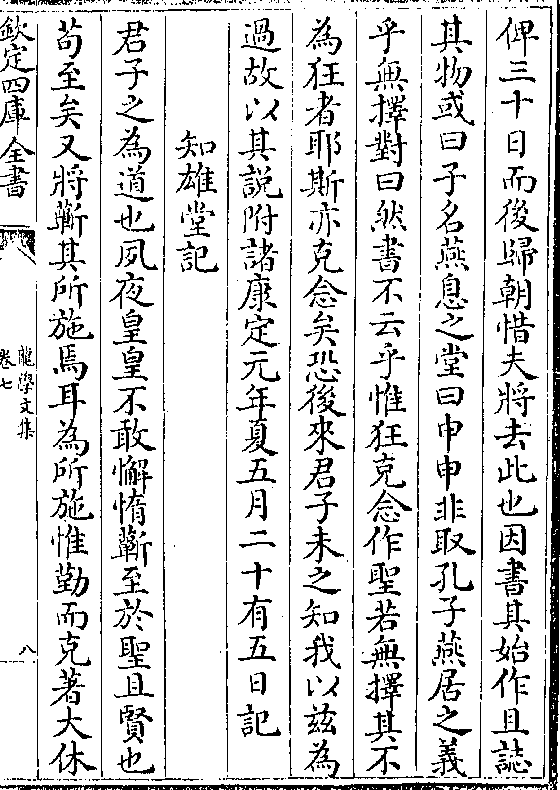 俾三十日而後歸朝惜夫將去此也因書其始作且誌
其物或曰子名燕息之堂曰申申非取孔子燕居之義
乎無擇對曰然書不云乎惟狂克念作聖若無擇其不
為狂者耶斯亦克念矣恐後來君子未之知我以兹為
過故以其説附諸康定元年夏五月二十有五日記
知雄堂記
君子之為道也夙夜皇皇不敢懈惰蘄至於聖且賢也
苟至矣又將蘄其所施焉耳為所施惟勤而克著大休
欽定四庫全書
龍學文集
卷七
八